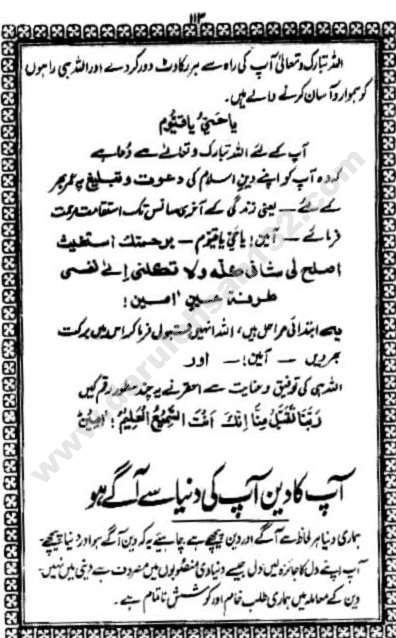 ۱۱۳
اللہ تبارک و تعالیٰ آپ کی راہ سے ہر رکاوٹ دور کر دے اور اللہ ہی راہوں
کو ہموار و آسان کرنے والے ہیں۔
یا حیّ یا قیّوم
آپ کے لئے اللہ تبارک و تعالےٰ سے دُعا ہے
کہ وہ آپ کو اپنے دینِ اسلام کی دعوت و تبلیغ پر عمر بھر
کے لئے — یعنی زندگی کے آخری سانس تک استقامت مرحمت
فرمائے — آمین! یا حیّ یا قیّوم — برحمتك استغیث
اصلح لی شانی کلّه ولا تکلنی إلےٰ نفسی
طرفة عین، امین!
یہ ابتدائی مراحل ہیں، اللہ انہیں قبول فرما کر اس میں برکت
بھر دیں — آمین! — اور
اللہ ہی کی توفیق و عنایت سے احقر نے یہ چند سطور رقم کیں
رَبَّنَا تَقَبَّلْ مِنَّا اِنَّكَ اَنْتَ السَّمِیْعُ الْعَلِیْمُ! اٰمین
آپ کا دین آپ کی دنیا سے آگے ہو
ہماری دنیا ہر لحاظ سے آگے اور دین پیچھے ہے چاہیئے یہ کہ دین آگے ہو اور دنیا پیچھے۔
آپ اپنے دل کا جائزہ لیں، دل جیسے دنیاوی منصوبوں میں مصروف ہے دینی میں نہیں۔
دین کے معاملہ میں ہماری طلب خام اور کوشش ناتمام ہے۔